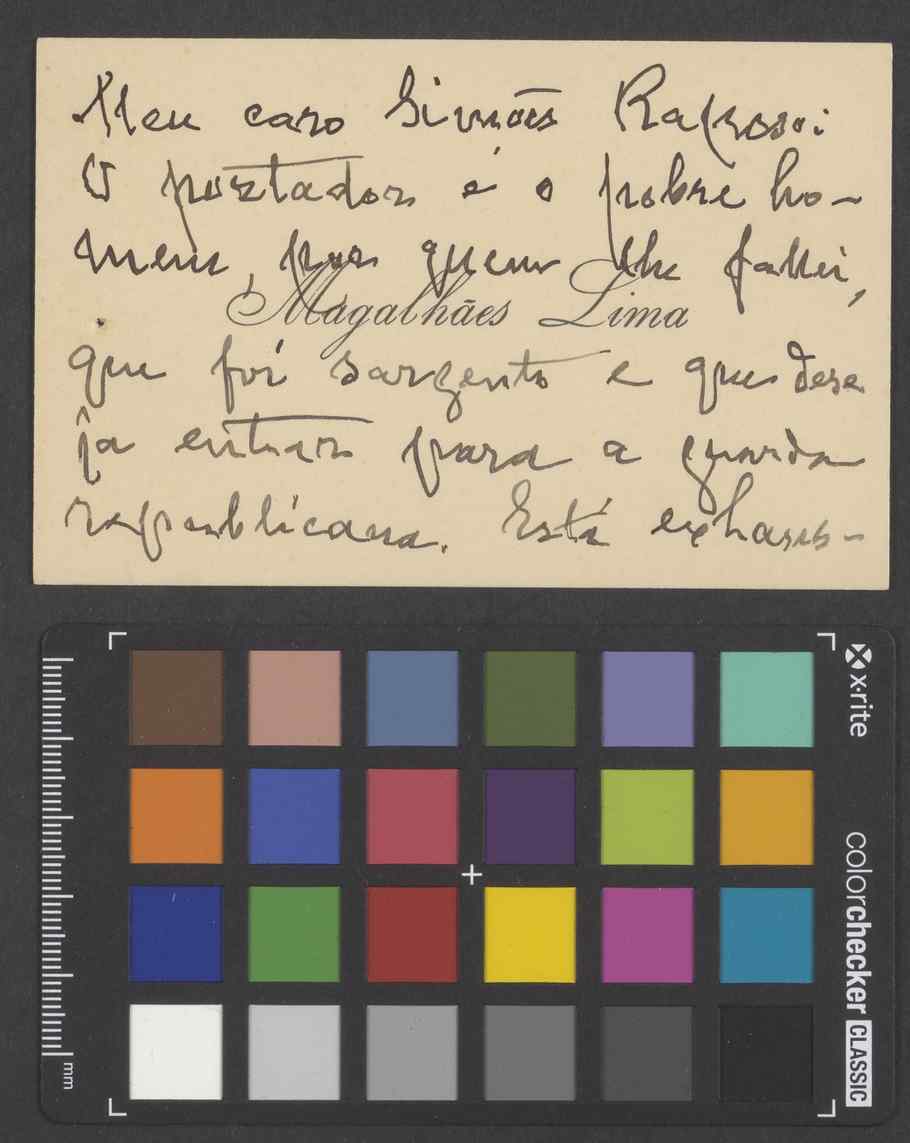 Meu caro Simões Raposo:
O portador é o pobre ho-
mem, por quem lhe fallei,
Magalhães Lima
que foi sargento e que dese
ja entrar para a guarda
republicana. Está exhaus-
x·rite
colorchecker CLASSIC
mm